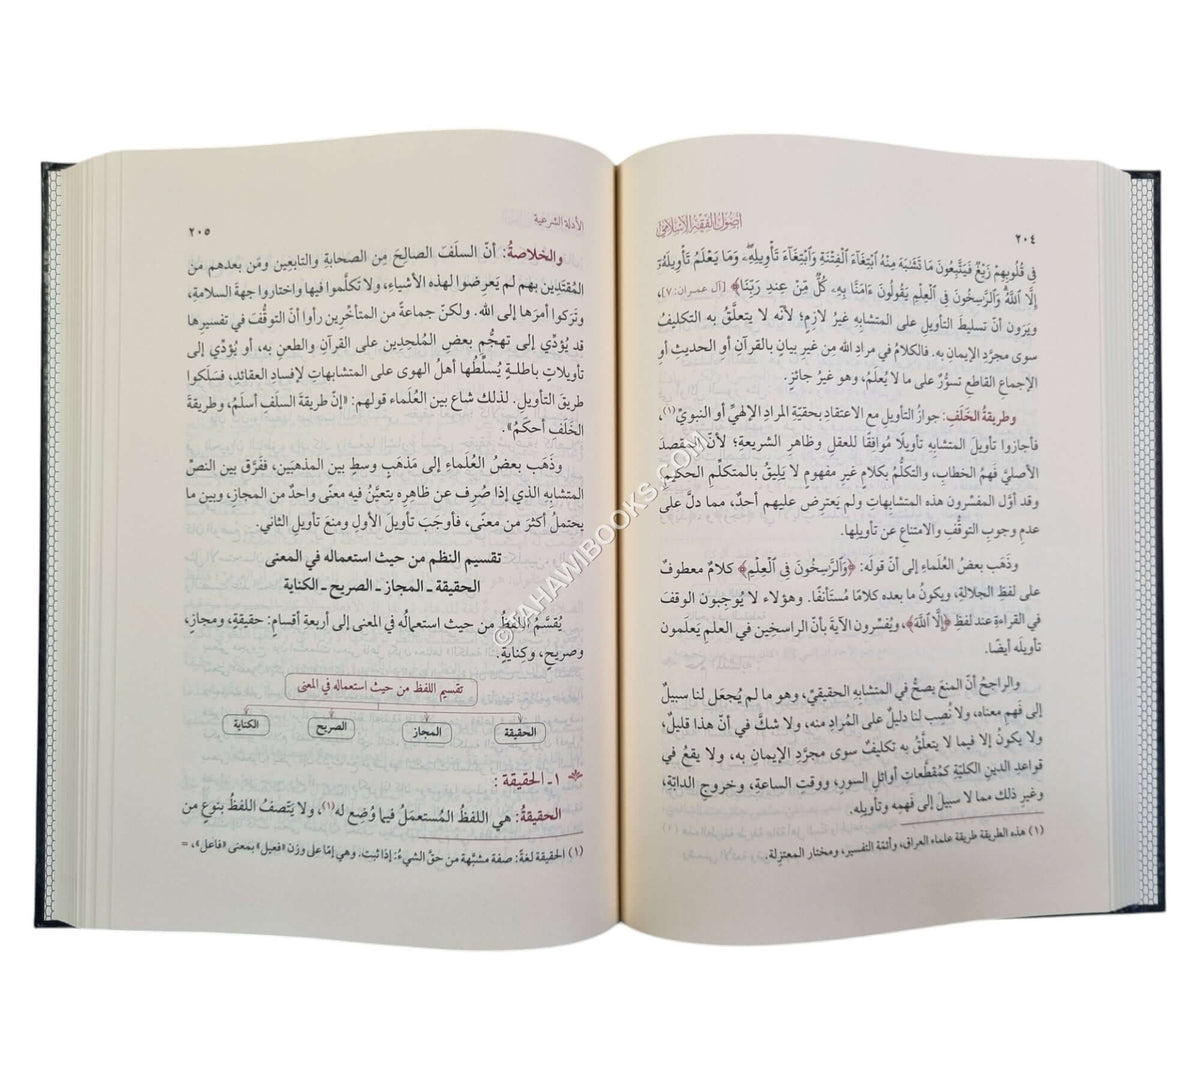 ٢٠٤
أصول الفقه الإسلامي
فِي قُلُوبِهِمْ زَيْغٌ فَيَتَّبِعُونَ مَا تَشَٰبَهَ مِنْهُ ٱبْتِغَآءَ ٱلْفِتْنَةِ وَٱبْتِغَآءَ تَأْوِيلِهِۦۖ وَمَا يَعْلَمُ تَأْوِيلَهُۥٓ
إِلَّا ٱللَّهُۗ وَٱلرَّٰسِخُونَ فِي ٱلْعِلْمِ يَقُولُونَ ءَامَنَّا بِهِۦ كُلٌّ مِّنْ عِندِ رَبِّنَا﴾ [آل عمران: ٧]،
ويَرَون أنّ تسليطَ التأويل على المتشابِه غيرُ لازمٍ؛ لأنّه لا يتعلَّق به التكليفُ
سوى مجرَّدِ الإيمانِ به. فالكلامُ في مرادِ الله مِن غيرِ بيانٍ بالقرآنِ أو الحديثِ أو
الإجماعِ القاطعِ تسوُّرٌ على ما لا يُعلَمُ، وهو غيرُ جائزٍ.
وطريقةُ الخَلَفِ: جوازُ التأويلِ مع الاعتقاد بحقيّة المرادِ الإلهيِّ أو النبويِّ (١)،
فأجازوا تأويلَ المتشابِه تأويلًا مُوافِقًا للعقلِ وظاهرِ الشريعةِ؛ لأنّ المقصدَ
الأصليَّ فهمُ الخطابِ، والتكلُّمُ بكلامٍ غيرِ مفهومٍ لا يَليقُ بالمتكلِّمِ الحكيمِ.
وقد أوَّل المفسِّرون هذه المتشابِهاتِ ولم يَعترِض عليهم أحدٌ، مما دلَّ على
عدمِ وجوبِ التوقُّفِ والامتناعِ عن تأويلِها.
وذَهَب بعضُ العُلَماءِ إلى أنّ قولَه: ﴿وَٱلرَّٰسِخُونَ فِي ٱلْعِلْمِ﴾ كلامٌ معطوفٌ
على لفظِ الجلالةِ، ويكونُ ما بعده كلامًا مُستَأنَفًا. وهؤلاء لا يُوجِبون الوقفَ
في القراءةِ عند لفظِ ﴿إِلَّا ٱللَّهُ﴾، ويُفسِّرون الآيةَ بأنّ الراسخين في العلمِ يَعلَمون
تأويلَه أيضًا.
والراجحُ أنّ المنعَ يصحُّ في المتشابِهِ الحقيقيِّ، وهو ما لم يُجعَل لنا سبيلٌ
إلى فَهمِ معناه، ولا نُصِب لنا دليلٌ على المُرادِ منه، ولا شكَّ في أنّ هذا قليلٌ؛
ولا يكونُ إلا فيما لا يتعلَّق به تكليفٌ سوى مجرَّدِ الإيمانِ به، ولا يقعُ في
قواعدِ الدينِ الكليّةِ كمُقطَّعاتِ أوائلِ السورِ، ووقتِ الساعةِ، وخروجِ الدابّةِ،
وغيرِ ذلك مما لا سبيلَ إلى فَهمِه وتأويلِه.
(١) هذه الطريقة طريقة علماء العراق، وأئمّة التفسير، ومختار المعتزلة.
الأدلة الشرعية
٢٠٥
والخلاصةُ: أنّ السلَفَ الصالحَ مِن الصحابةِ والتابعين ومَن بعدهم من
المقتَدِين بهم لم يَعرِضوا لهذه الأشياءِ، ولا تكلَّموا فيها واختاروا جهةَ السلامةِ،
وتَركوا أمرَها إلى الله. ولكنّ جماعةً من المتأخِّرين رأوا أنّ التوقُّفَ في تفسيرِها
قد يُؤدِّي إلى تهجُّمِ بعضِ المُلحِدين على القرآنِ والطعنِ به، أو يُؤدِّي إلى
تأويلاتٍ باطلةٍ يُسلِّطُها أهلُ الهوى على المتشابهاتِ لإفسادِ العقائدِ، فسَلَكوا
طريقَ التأويلِ. لذلك شاع بين العُلَماء قولهم: «إنّ طريقةَ السلَف أسلَمُ، وطريقةَ
الخَلَف أحكَمُ».
وذَهَب بعضُ العُلَماءِ إلى مَذهَبٍ وسطٍ بين المذهبَين، ففَرَّق بين النصِّ
المتشابِهِ الذي إذا صُرِف عن ظاهرِه يتعيَّن فيه معنًى واحدٌ من المجازِ، وبين ما
يحتملُ أكثرَ من معنًى، فأوجَب تأويلَ الأولِ ومنعَ تأويلِ الثاني.
تقسيم النظم من حيث استعماله في المعنى
الحقيقة ـ المجاز ـ الصريح ـ الكناية
يُقسَّمُ اللفظُ من حيث استعمالُه في المعنى إلى أربعةِ أقسامٍ: حقيقةٍ، ومجازٍ،
وصريحٍ، وكِنايةٍ.
تقسيم اللفظ من حيث استعماله في المعنى
الحقيقة
المجاز
الصريح
الكناية
١ ـ الحقيقة :
الحقيقةُ: هي اللفظُ المُستعمَلُ فيما وُضِع له (١)، ولا يَتَّصفُ اللفظُ بنوعٍ من
(١) الحقيقة لغة: صفة مشبَّهة من حقَّ الشيءُ: إذا ثبت. وهي إمّا على وزن «فعيل» بمعنى «فاعل»، =
©TAHAWIBOOKS.COM